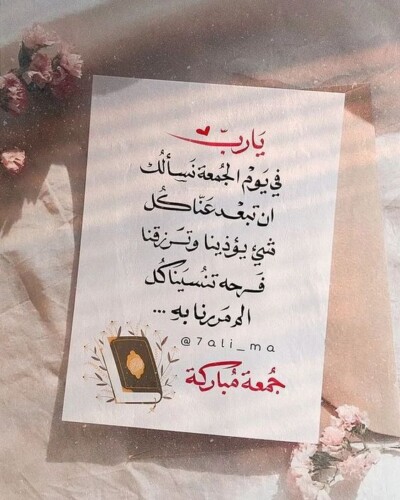 يَاربّ
في يَومْ الجُمعة نَسألُك
ان تبعْد عَنّا كُل
شيّ يؤذينا وتَرزقنا
فَرحه تنُسيَنا كُل
الم مَررنا بهِ ...
@7ali_ma
جُمعة مُباركة